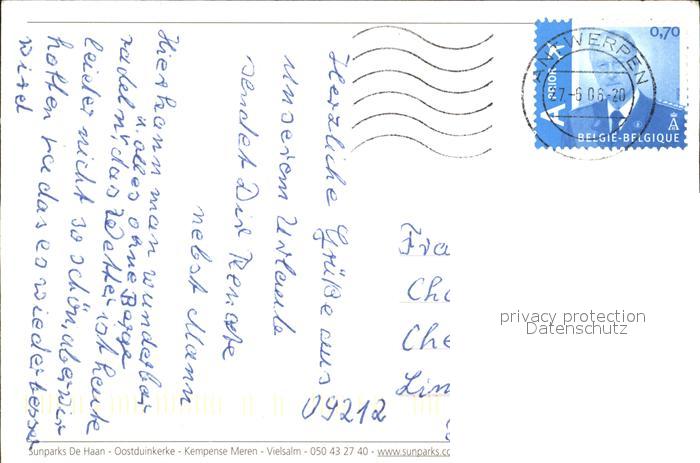 Herzliche Grüße aus
unserem Urlaub
sendet Dir Renate
nebst Mann
Hier kann man wunderbar
radeln, u. alles ohne Berge
das Wetter ist heute
leider nicht so schön, aber wir
hoffen, das es wieder besser
wird
Fra
Che
Lim
09212
ANTWERPEN
27-6 06-20
0,70
A PRIOR
BELGIE-BELGIQUE
privacy protection
Datenschutz
Sunparks De Haan - Oostduinkerke - Kempense Meren - Vielsalm - 050 43 27 40 - www.sunparks.co